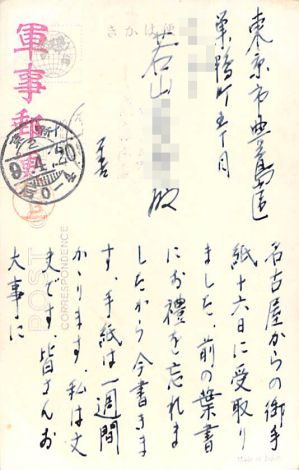 東京市豊島区
巣鴨町五丁目
若山
殿
軍事郵便
郵便はかき
POST
CORRESPONDENCE
名古屋からの御手
紙十六日に受取り
ました、前の葉書
にお禮を忘れま
したから今書きま
す、手紙は一週間
かゝります、私は丈
夫です、皆さんお
大事に
Made in Japan